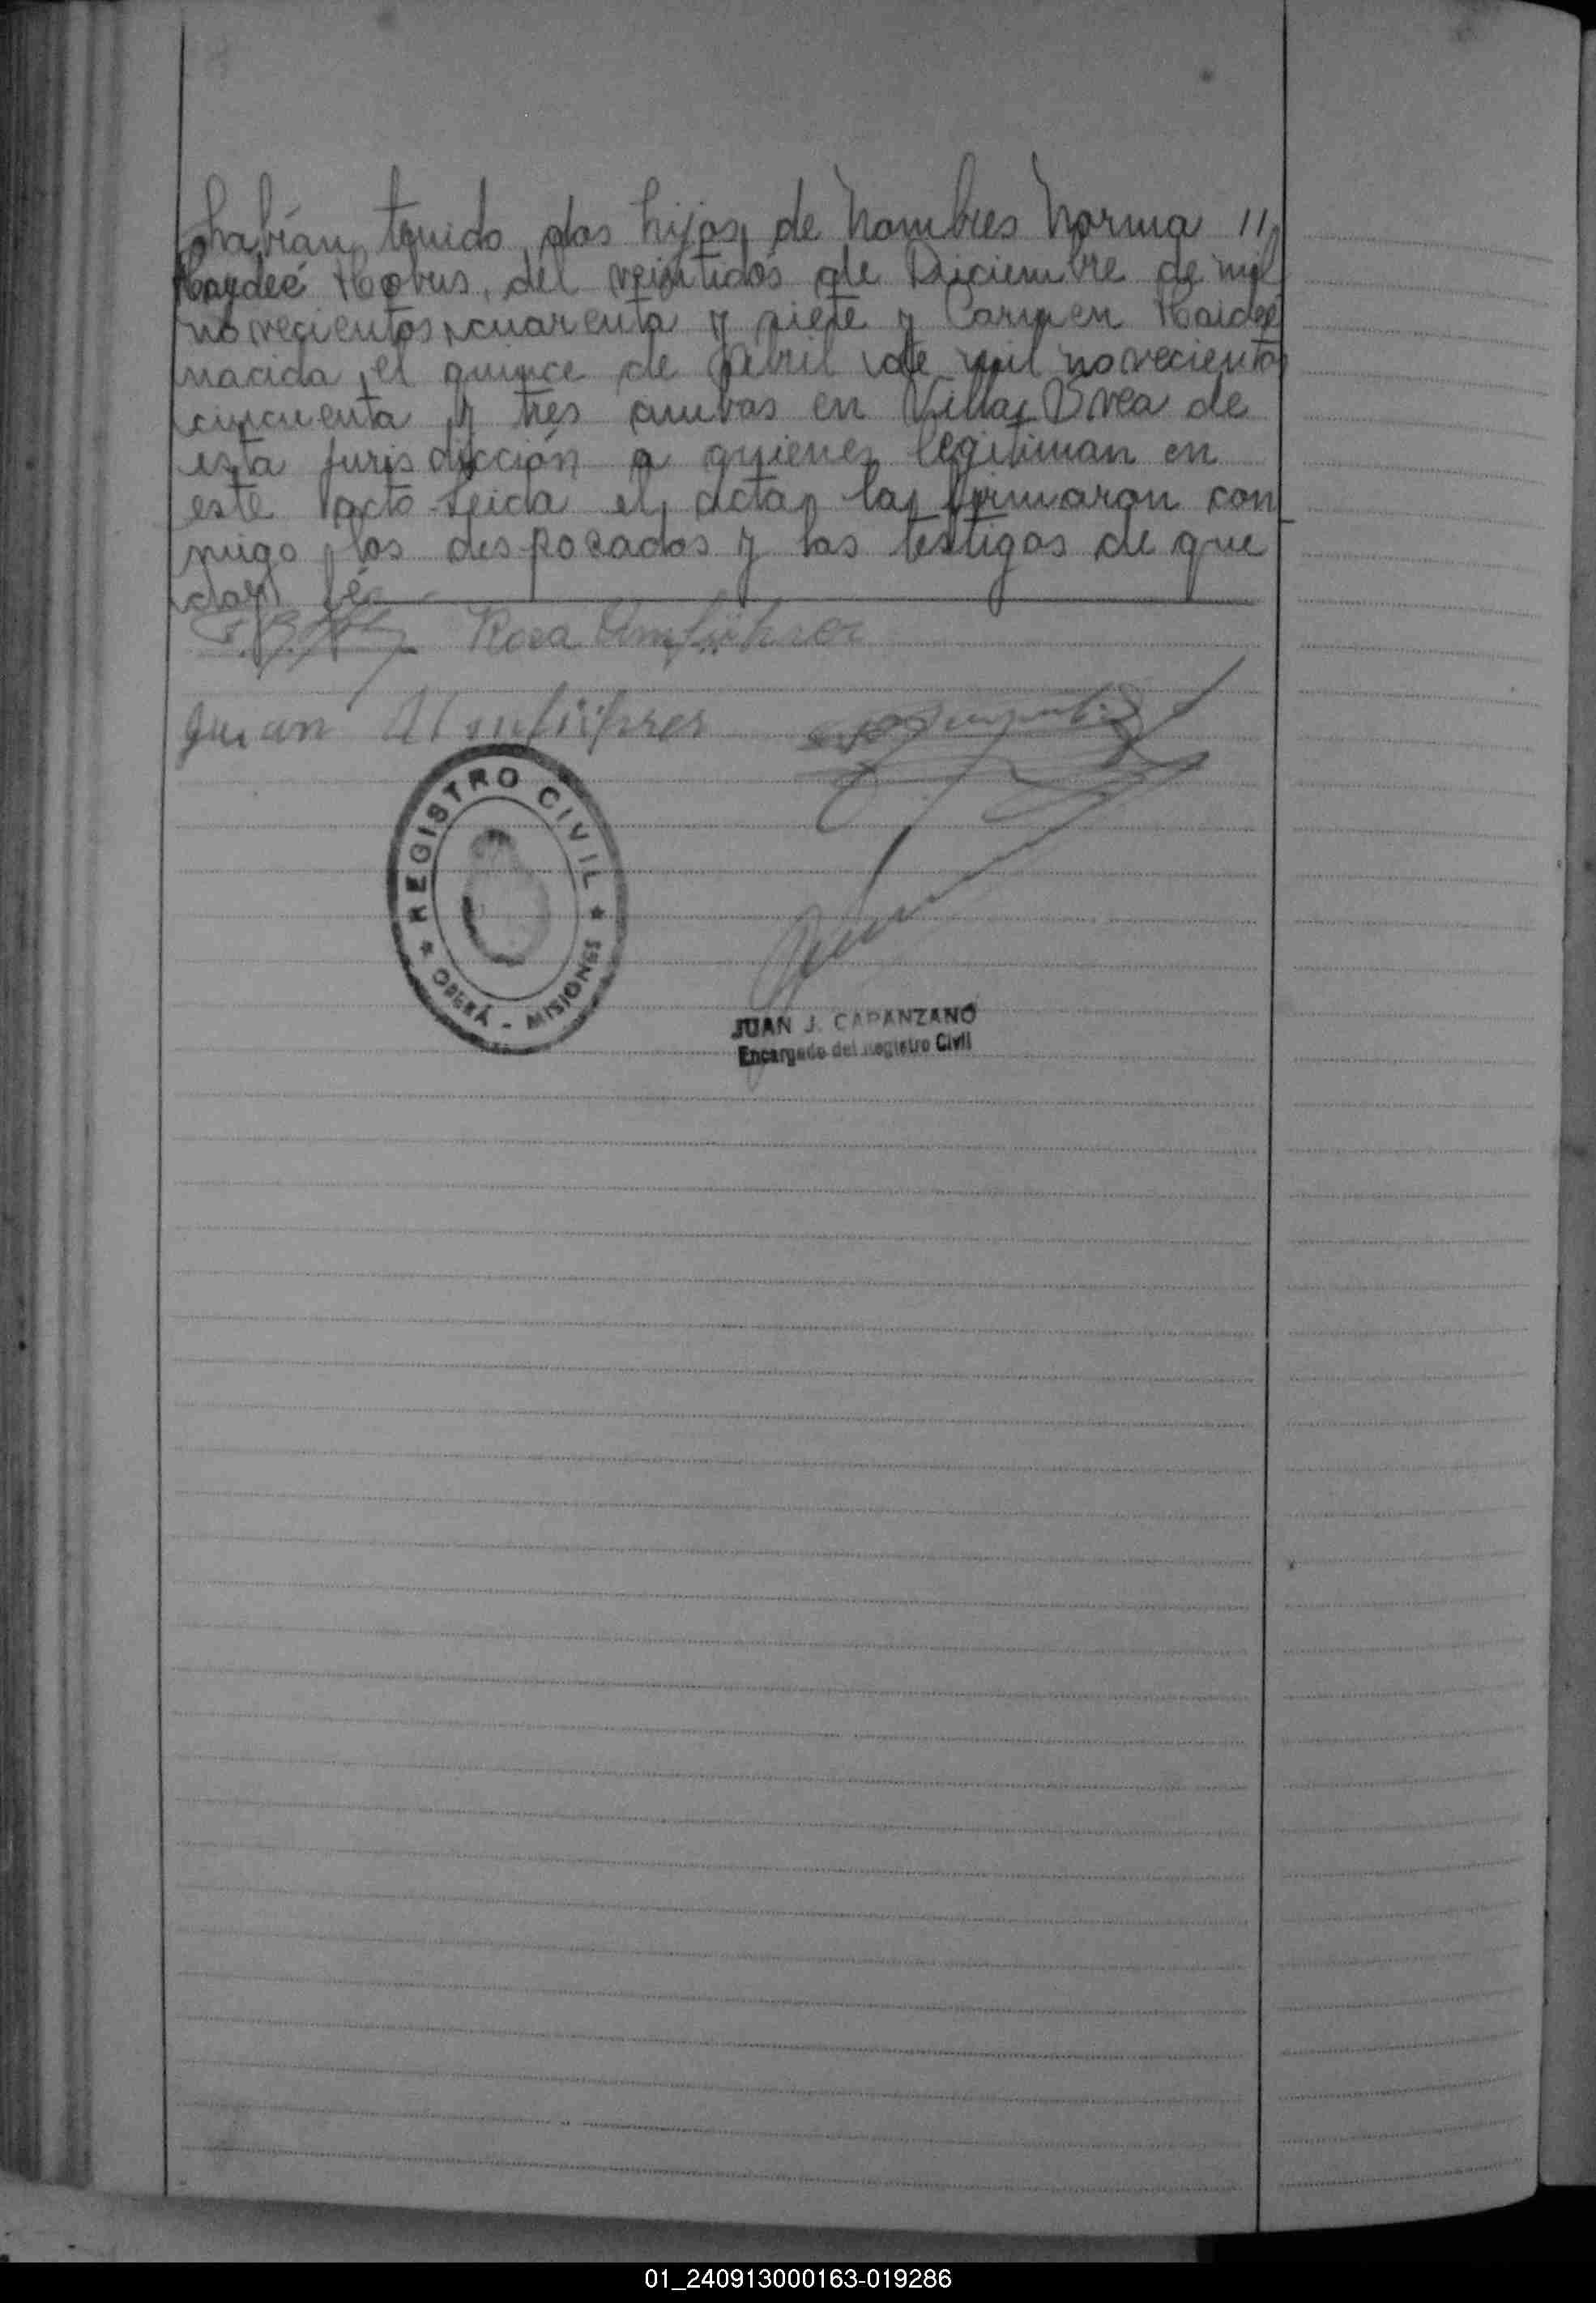 habían tenido dos hijas de nombres Norma //
Haydeé Hobus, del veintidós de Diciembre de mil
novecientos cuarenta y siete y Carmen Haideé
nacida el quince de Abril de mil novecientos
cincuenta y tres ambas en Villa Svea de
esta jurisdicción a quienes legitiman en
este acto Leida el acta, la firmaron con
migo los desposados y los testigos de que
doy fé
Rosa Umführer
Juan Umführer
REGISTRO CIVIL
OBERÁ - MISIONES
JUAN J. CAPANZANO
Encargado del Registro Civil
01_240913000163-019286